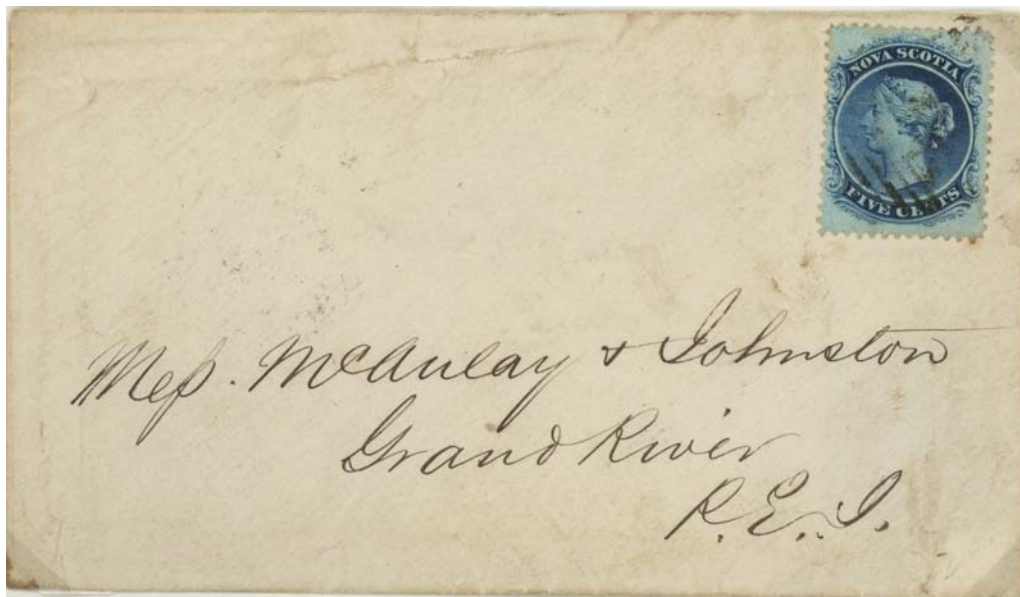 NOVA SCOTIA
FIVE CENTS
Mess. McAulay & Johnston
Grand River
P. E. I.